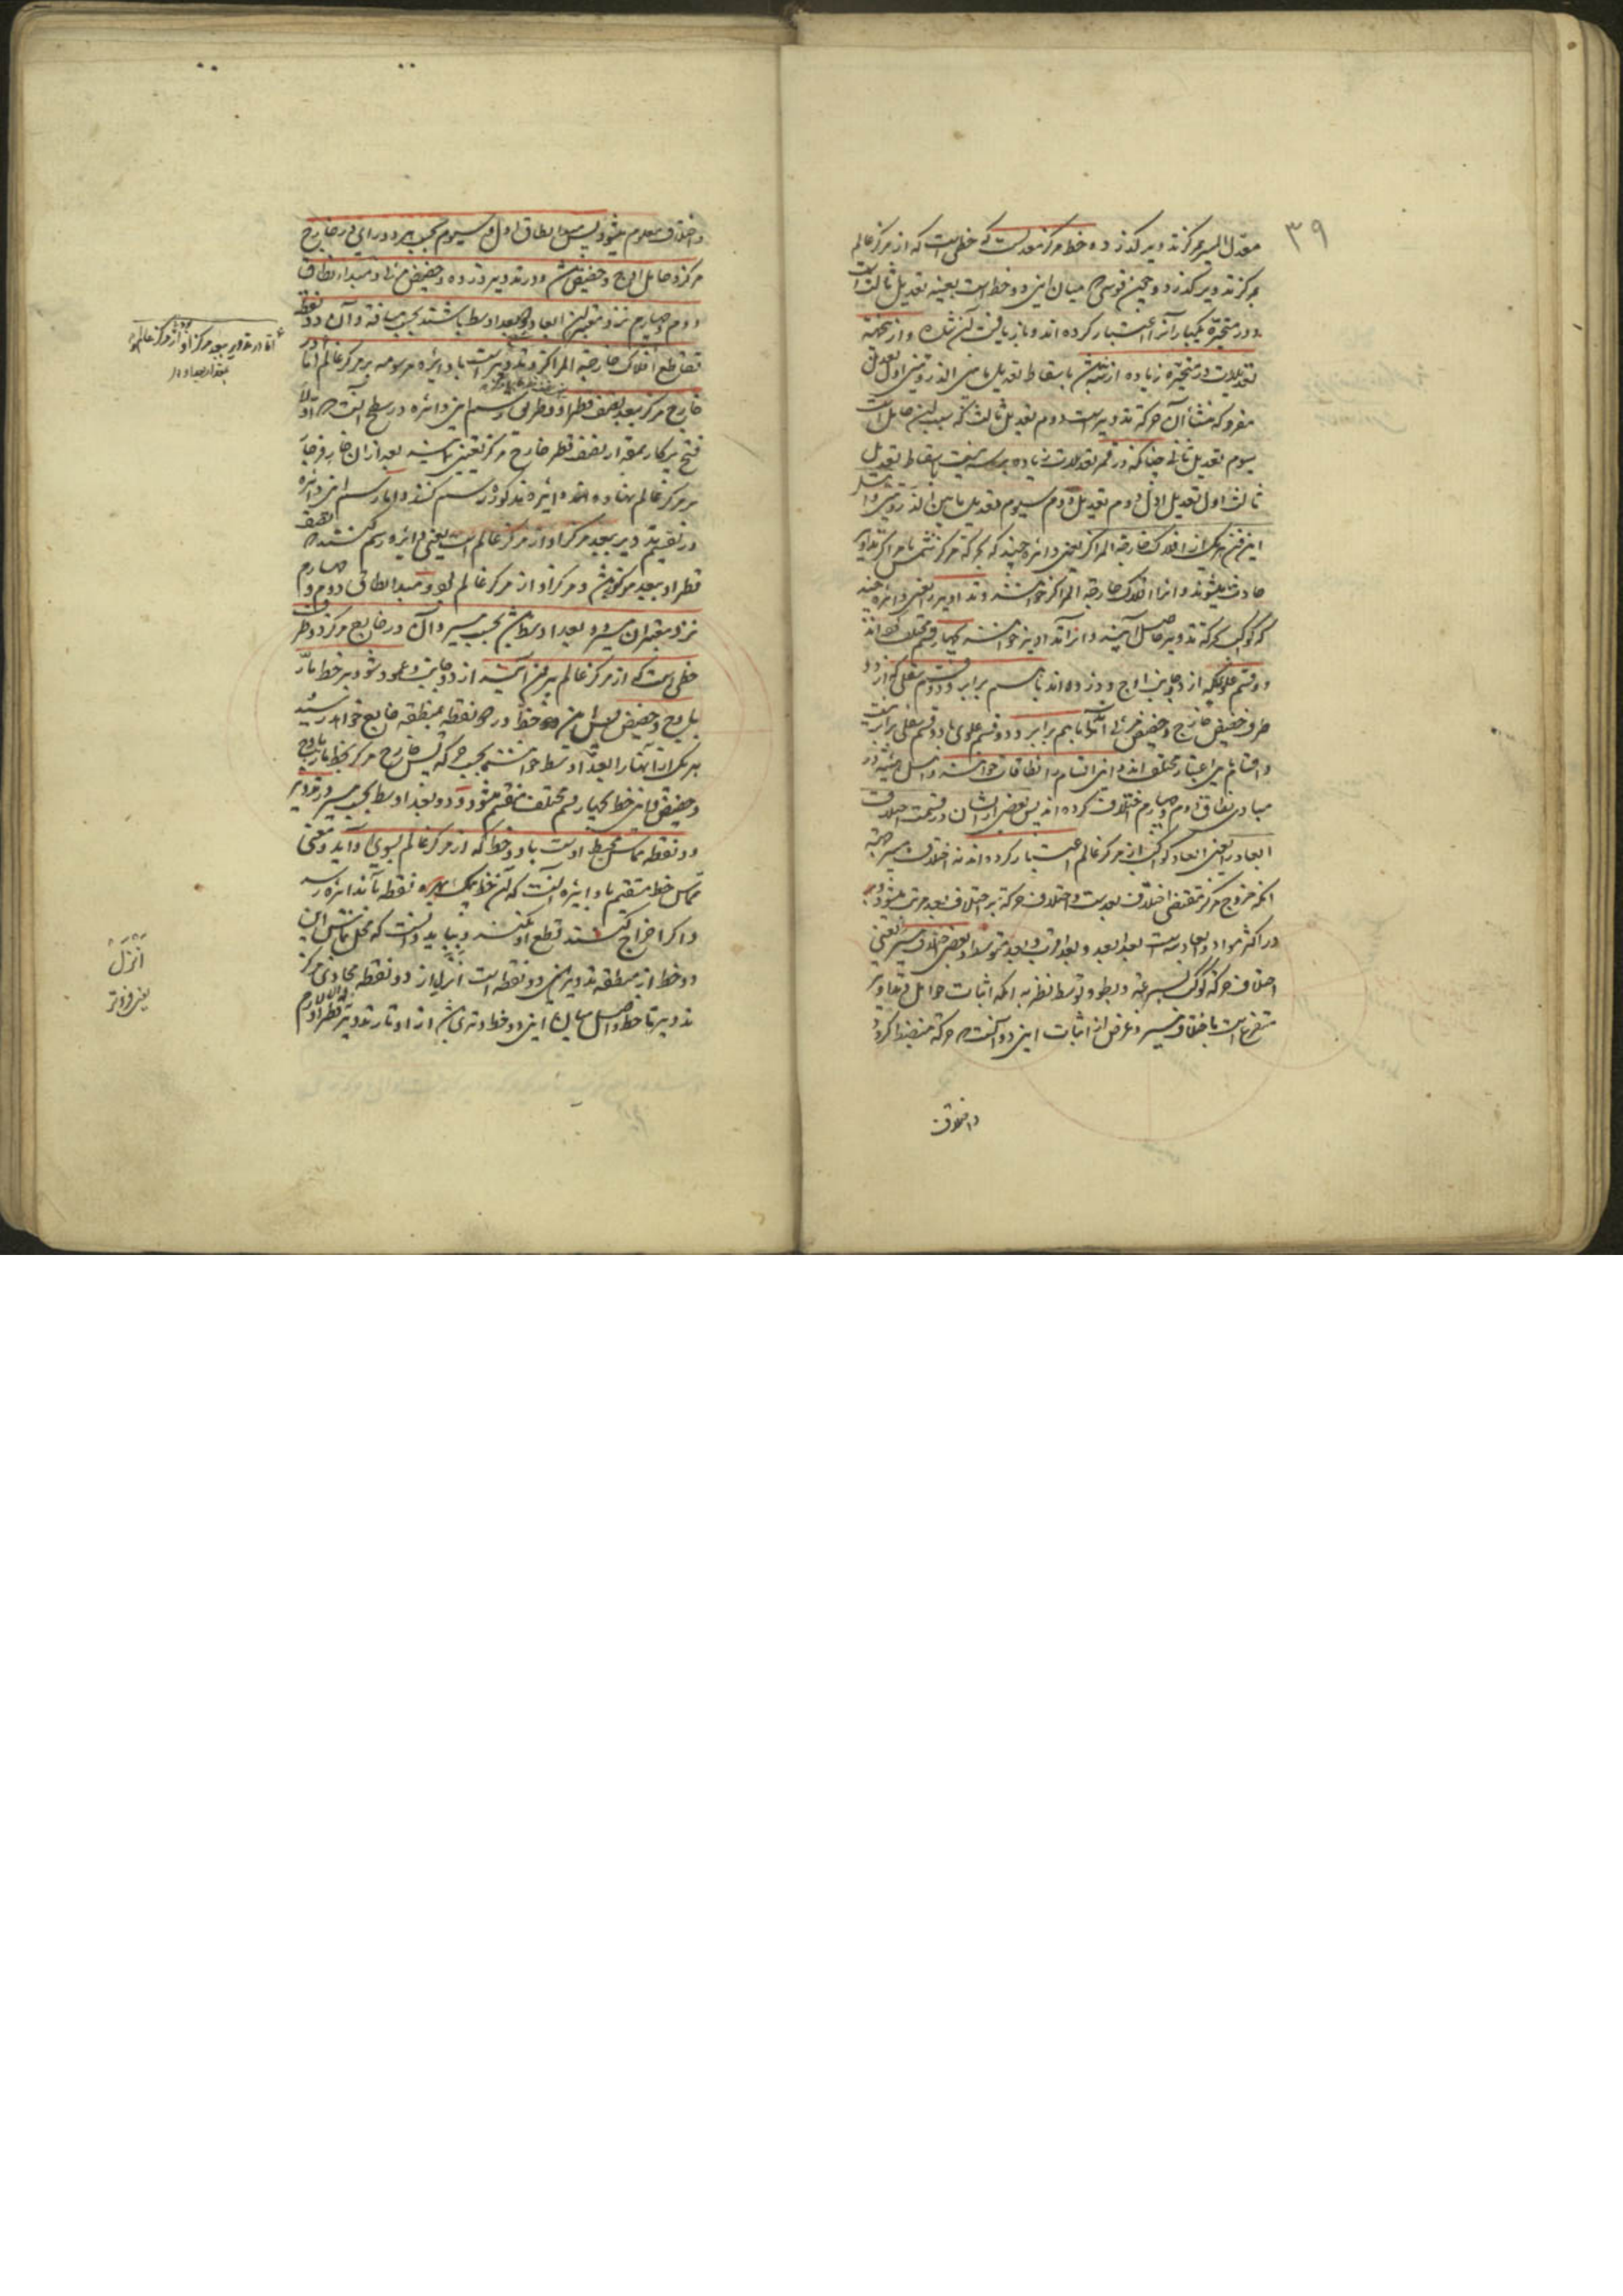 ۳۹
معدل المسیر بمرکز تدویر کذرد و خط مرکز معدلست که خطی است که از مرکز عالم
بمرکز تدویر کذرد و همچنین قوسی میان این دو خط است بعینه تعدیل ثالث است
و در متحیره یکبار آنرا اعتبار کرده اند و باز یافت آن شده و از جمله
تعدیلات در متحیره زیاده از بقاط تعدیل ما بین الذروتین اول تعدیل
مفرد که منشأ آن حرکة تدویرست دوم تعدیل ثالث که سبب این حامل است
سیوم تعدیل ثانی چنانکه در قمر تعدیلات زیاده بر سه نیست باسقاط تعدیل
ثالث اول تعدیل اول دوم تعدیل دوم سیوم تعدیل ما بین الذروتین
این فن هر یک از افلاک خارجة المراکز یعنی دائره چند که بحرکة مرکز شمس یا مراکز تداویر
حادث میشوند و آنرا افلاک خارجة المراکز خوانند و تداویر را یعنی دائره چند
که کوکب بحرکة تدویر حاصل آید و آنرا تداویر خوانند بچهار قسم مختلف کرده اند
دو قسم علوی که از دو جانب اوج و ذروه اند با هم برابر و دو قسم سفلی که از دو
طرف حضیض خارج و حضیض مرئی اند با هم برابر و دو قسم علوی با دو قسم سفلی برابر نیست
و اقسام باین اعتبار مختلف اند و این اقسام را نطاقات خوانند و اهل هیئة در
مبادی نطاق دوم و چهارم اختلاف کرده اند پس بعضی از ایشان در قسمت اختلاف
ابعاد را یعنی ابعاد کواکب از مرکز عالم اعتبار کرده اند نه اختلاف مسیر بجهة
آنکه خروج مرکز مقتضی اختلاف بعدست و اختلاف حرکة بر اختلاف بعد مترتب میشود
در اکثر مواد و ابعاد سه است بعد ابعد و بعد اقرب و بعد متوسط و بعضی اختلاف مسیر یعنی
اختلاف حرکة کوکب بسرعة و بطو و توسط نظر به آنکه اثبات حوامل و تداویر
متفرع است باختلاف مسیر و غرض از اثبات این دو آنست که حرکة منضبط کردد
و اختلاف
و اختلاف معلوم میشود پس مبدا نطاق اول و سیوم بحسب هر دو رای در خارج
مرکز و حامل اوج و حضیض باشد و در تدویر ذروه و حضیض مرئی و مبداء نطاق
دوم و چهارم نزد معتبرین ابعاد دو بعد اوسط باشند بحسب مسافة و آن دو نقطه
تقاطع افلاک خارجة المراکز و تدویرست با دائره مرسومه بر مرکز عالم اما در
خارج مرکز ببعد نصف قطر او و طریق رسم این دائره در سطح آنست که اولا
فتح پرکار بمقدار نصف قطر خارج مرکز تعیین نمایند بعد از آن خار فرجار
بر مرکز عالم نهاده دائره مذکوره رسم کنند و اما رسم این دائره
در تقسیم تدویر ببعد مرکز او از مرکز عالم است یعنی دائره رسم کنند که نصف
قطر او ببعد مرکز او از مرکز عالم بود و مبدا نطاق دوم و چهارم
نزد معتبران مسیر دو بعد اوسط باشد بحسب مسیر و آن در خارج مرکز دو طرف
خطی است که از مرکز عالم بیرون آید از دو جانب و عمود شود بر خط مار
باوج و حضیض پس این خط در دو نقطه بمنطقه خارج خواهد رسید
هر یک از آنها را بعد اوسط خوانند بحسب حرکة پس خارج مرکز بخط مار باوج
و حضیض و این خط بچهار قسم مختلف منقسم میشود و دو بعد اوسط بحسب مسیر در تدویر
دو نقطه تماس محیط اوست با دو خط که از مرکز عالم بسوی او آید و معنی
تماس خط مستقیم با دائره آنست که آن خط بیک نقطه بآن دائره رسد
و اکر اخراج کنند قطع او نکند و بباید دانست که محل تماس این
دو خط از منطقه تدویر این دو نقطه است انزل از دو نقطه محاذی مرکز
تدویر تا خط واصل میان این دو خط وتری باشد از اوتار تدویر نه قطر او
اما در تدویر ببعد مرکز او از مرکز عالم
بمقدار بعد او
انزل
یعنی فروتر